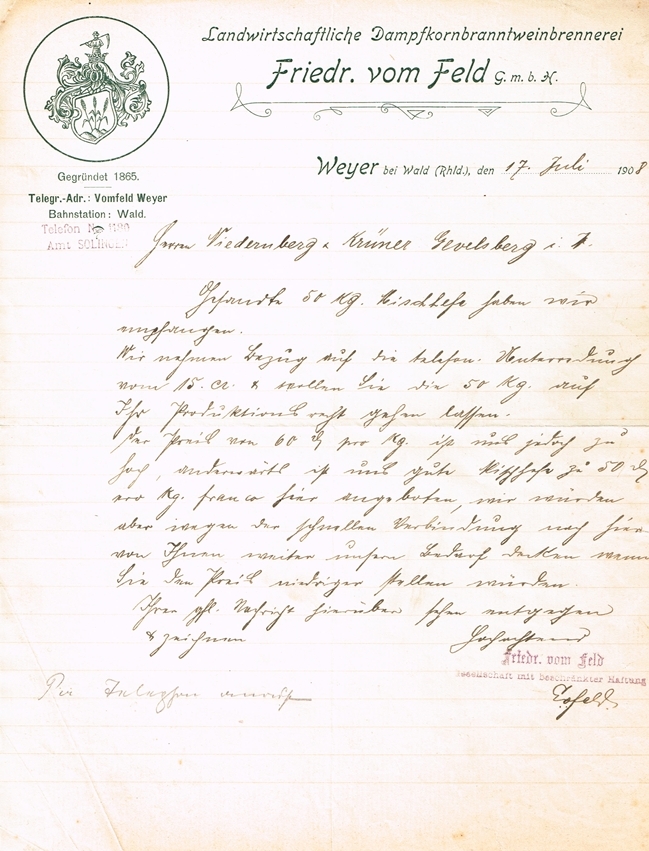 Landwirtschaftliche Dampfkornbranntweinbrennerei
Friedr. vom Feld G. m. b. H.
Gegründet 1865.
Telegr.-Adr.: Vomfeld Weyer
Bahnstation: Wald.
Telefon No 1180
Amt SOLINGEN
Weyer bei Wald (Rhld.), den 17. Juli 1908
Herrn Niedernberg & Krüner Gevelsberg i. W.
Gesandte 50 Kg. Mischhefe haben wir
empfangen.
Wir nehmen Bezug auf die telefon. Unterredung
vom 15. cr. & wollen Sie die 50 Kg. auf
Ihr Produktionsrecht gehen lassen.
Der Preis von 60 ₰ pro Kg. ist uns jedoch zu
hoch, anderwärts ist uns gute Mischhefe zu 50 ₰
pro Kg. franco hier angeboten, wir würden
aber wegen der schnellen Verbindung nach hier
von Ihnen weiter unsern Bedarf decken wenn
Sie den Preis niedriger stellen würden.
Ihrer gfl. Nachricht hierüber sehen entgegen
& zeichnen Hochachtend
Friedr. vom Feld
Gesellschaft mit beschränkter Haftung
Per Telephon